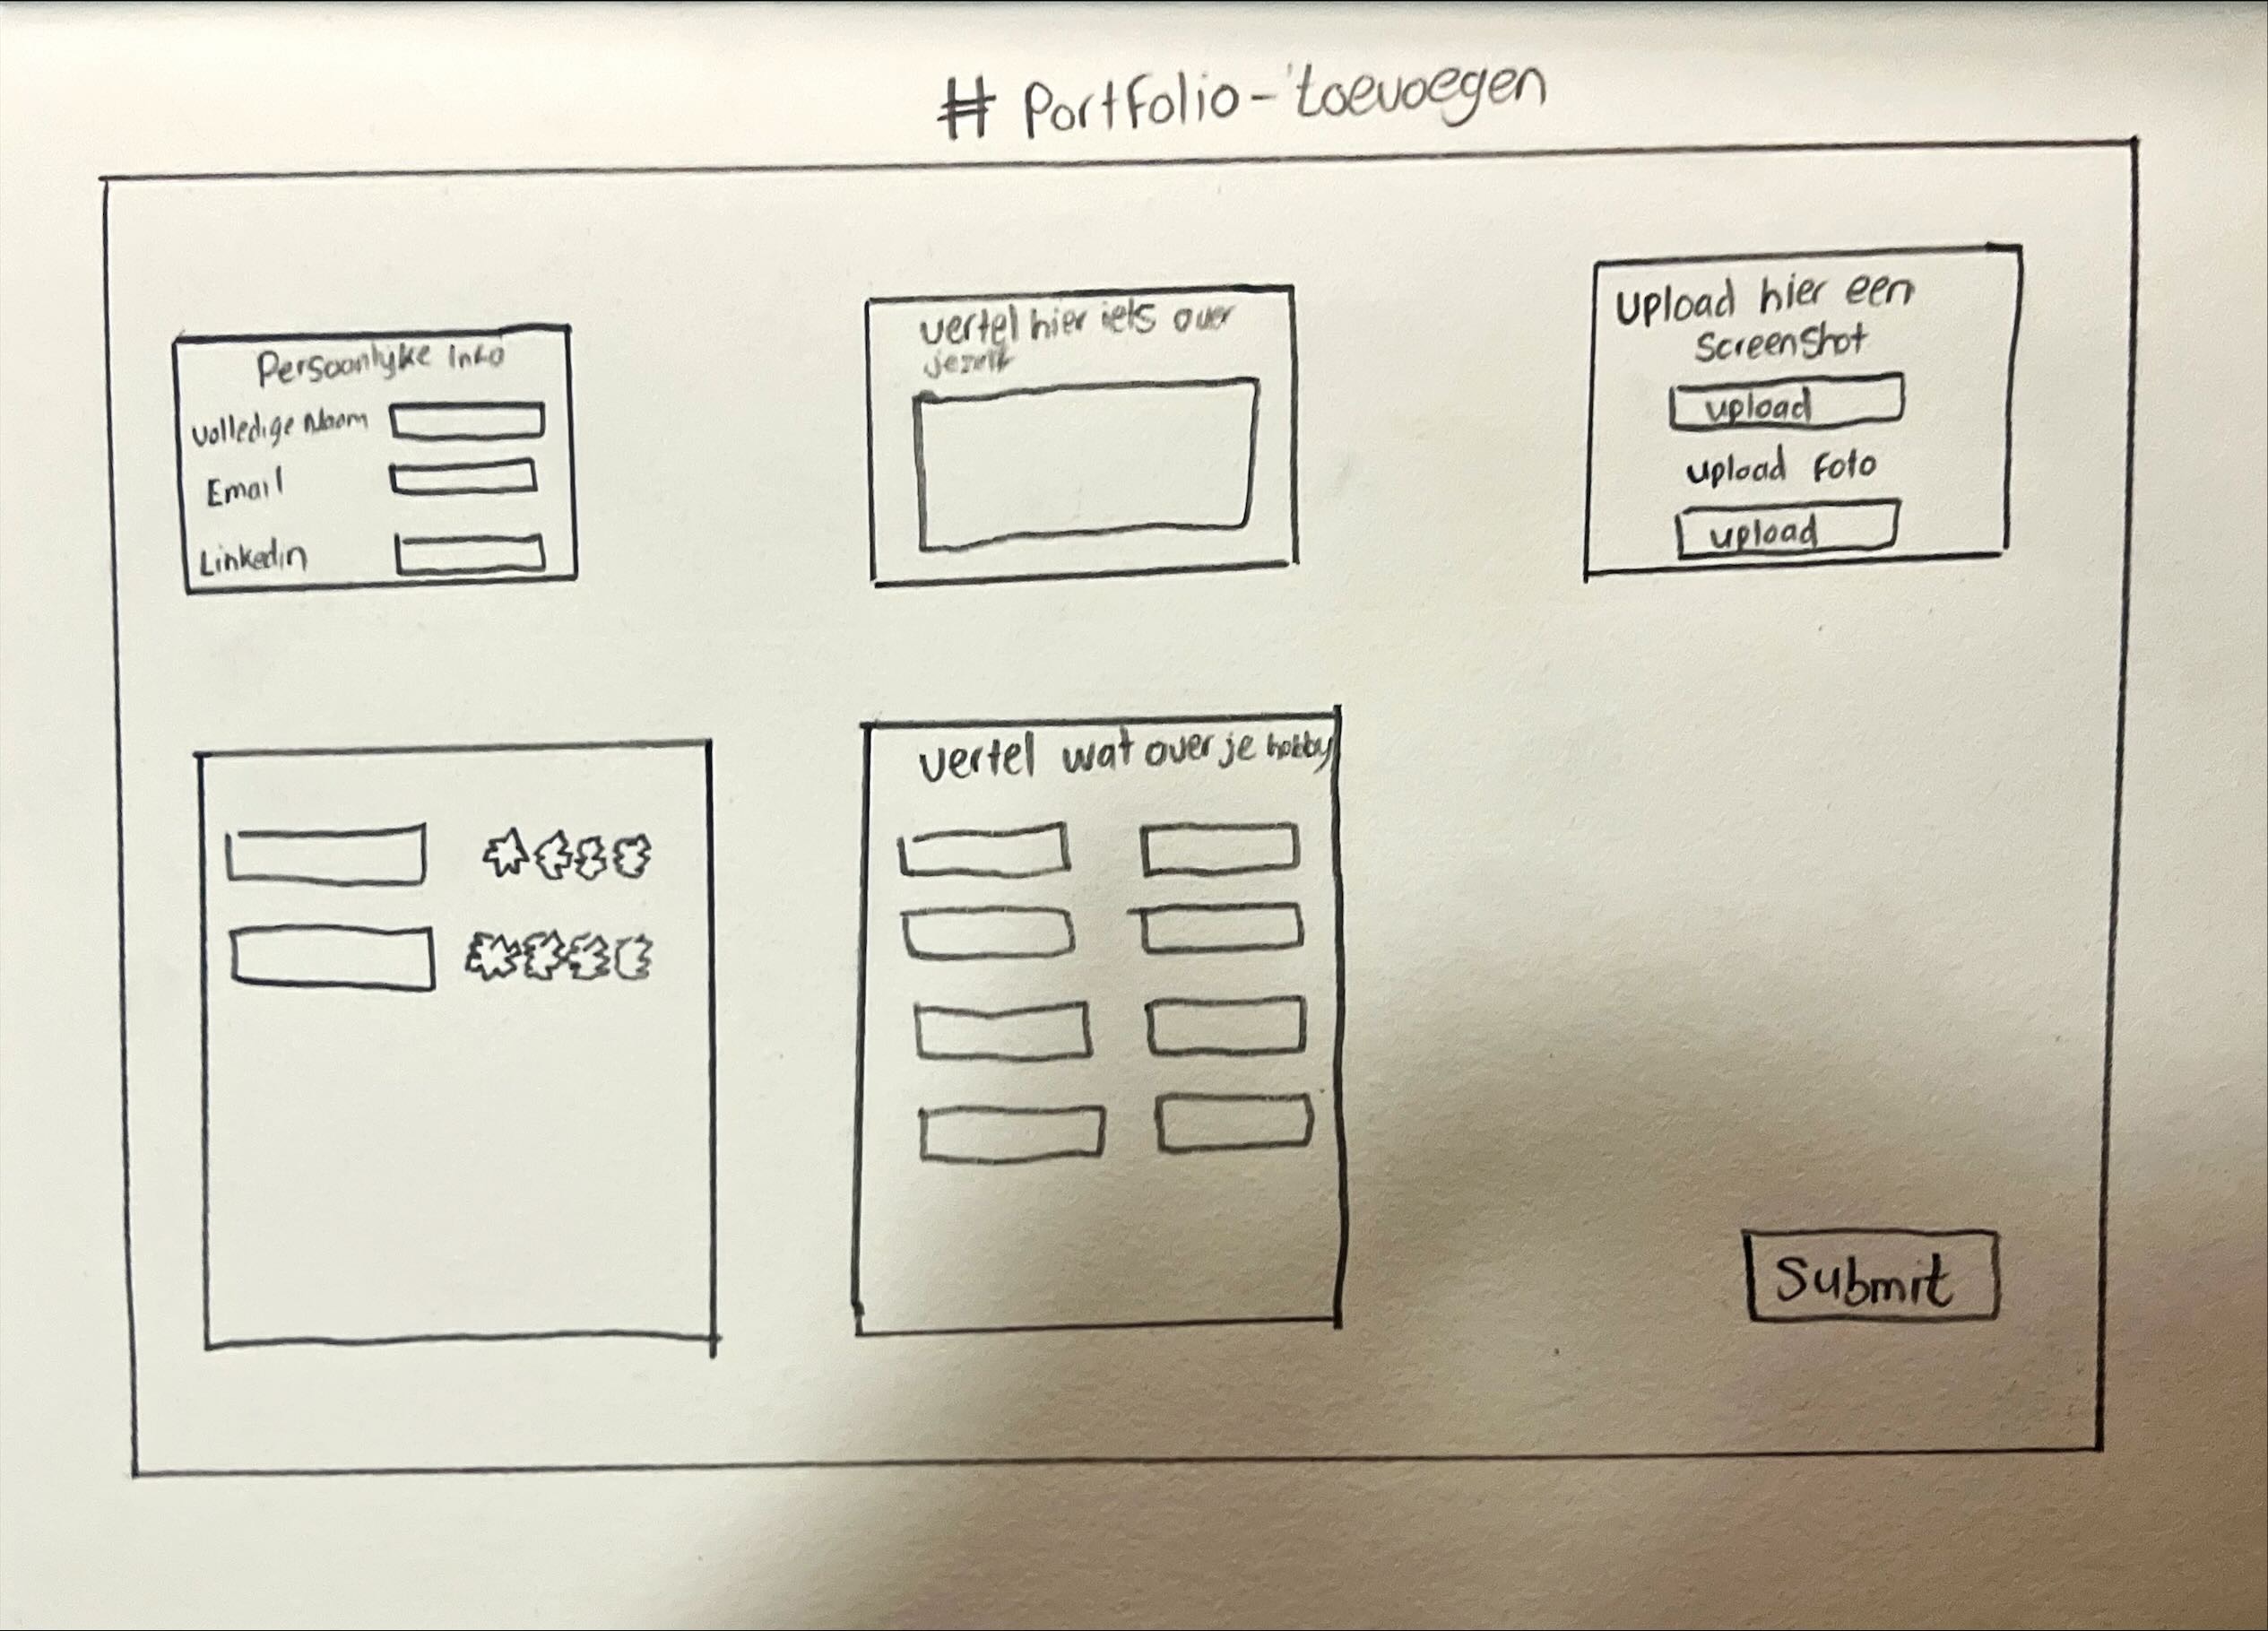 # Portfolio-toevoegen
Persoonlijke info
Volledige Naam
Email
Linkedin
vertel hier iets over
jezelf
Upload hier een
ScreenShot
upload
upload foto
upload
vertel wat over je hobby
Submit